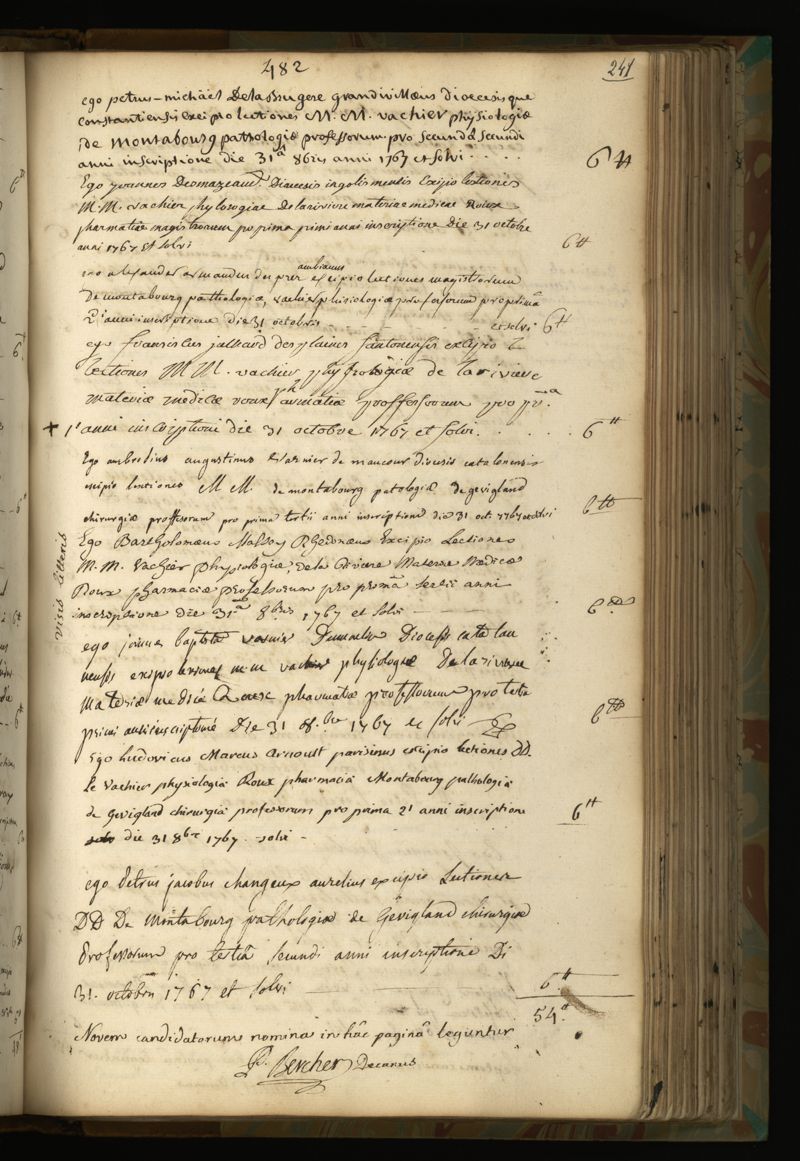 482
241
ego petrus-michael Delabrugere grandivillæus dioecesisque
constantiensis excipio lectiones M. M. vachier physiologiæ
de montabourg pathologiæ professorum pro secundâ secundi
anni inscriptione die 31ª 8bris anni 1767 et solvi 6 ₶
Ego joannes Desmazeaux Diœcesis ingolismensis Excipio lectiones
M. M. vachier physologiae Delariviere materiae medicae Roux
pharmatiae magistrorum pro prima primi anni inscriptione die 31 octobre
anni 1767 Et solvi 6₶
ego alexander armandus
ambianus
excipio lectiones magistrorum
De montabourg pathologiæ, vachier phisiologiæ professorum pro primâ
2i anni inscriptione die 31 octobris et solvi 6₶
ego franciscus jallaud desplaines santonensis excipio
lectiones M M. vachier physiologiæ de lariviere
materiæ medicæ roux pharmatiæ proffessorum pro pri.ma
+ 1i anni inscriptioni die 31 octobre 1767 et solvi. 6 ₶
Ego ambrosius augustinus varnier de maucour diocesis catalonensis
excipio lectiones M M. de montabourg patologiæ de gevigland
chirurgiæ proffesorum pro prima tertii anni inscriptione die 31 oct. 1767 et solvi 6₶
visis litteris
Ego Bartholomeus Massoy Rhodonæus Excipio Lectiones
M. M. Vachier physiologiæ de la Riviere Materiæ Medicæ
Roux pharmaciæ professorum pro primâ tertii anni
inscriptione die 31ª 8bris 1767 et solvi 6₶
ego joannes baptista varnier Diocesis catalau
nensis excipio lectiones m. m vachier physiologiæ Delariviere
Materiæ medicæ Roux pharmatiæ professorum pro tertia
primi anni inscriptione Die 31 8.bre 1767 et solvi 6₶
Ego Ludovicus Marcus Arnoult parisinus excipio lectiones DD.
le Vachier physiologiæ Roux pharmaciæ Montabourg pathologiæ
de Gevigland chirurgiæ professorum pro prima 2i anni inscriptione 6₶
die 31 8bre 1767. solvi -
ego Petrus jacobus changeux aurelius excipio Lectiones
DD De Montabourg pathologiæ de Gévigland chirurgiæ
Professorum pro tertiâ secundi anni inscriptione Di
31. octobris 1767 et solvi 6.₶
54.₶
Novem candidatorum nomina in hâc paginâ leguntur
P. Bercher Decanus